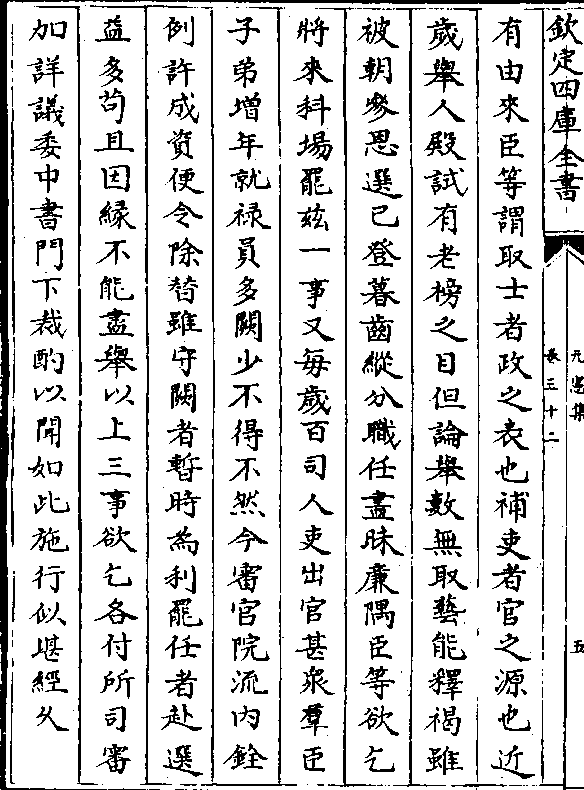 欽定四庫全書
元憲集
卷三十二
五
有由來臣等謂取士者政之表也補吏者官之源也近
歲舉人殿試有老榜之目但論舉數無取藝能釋褐雖
被朝參恩選已登暮齒縱分職任盡昧廉隅臣等欲乞
將來科場罷玆一事又每歲百司人吏出官甚衆羣臣
子弟增年就禄員多闕少不得不然今審官院流内銓
例許成資便令除替雖守闕者暫時為利罷任者赴選
益多苟且因縁不能盡舉以上三事欲乞各付所司審
加詳議委中書門下裁酌以聞如此施行似堪經乆